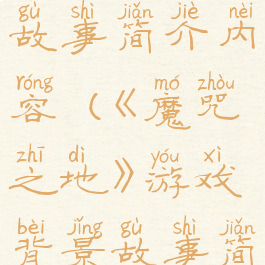 gù shì jiǎn jiè nèi
故事简介内
róng mó zhòu
容（《魔咒
zhī dì yóu xì
之地》游戏
bèi jǐng gù shì jiǎn
背景故事简